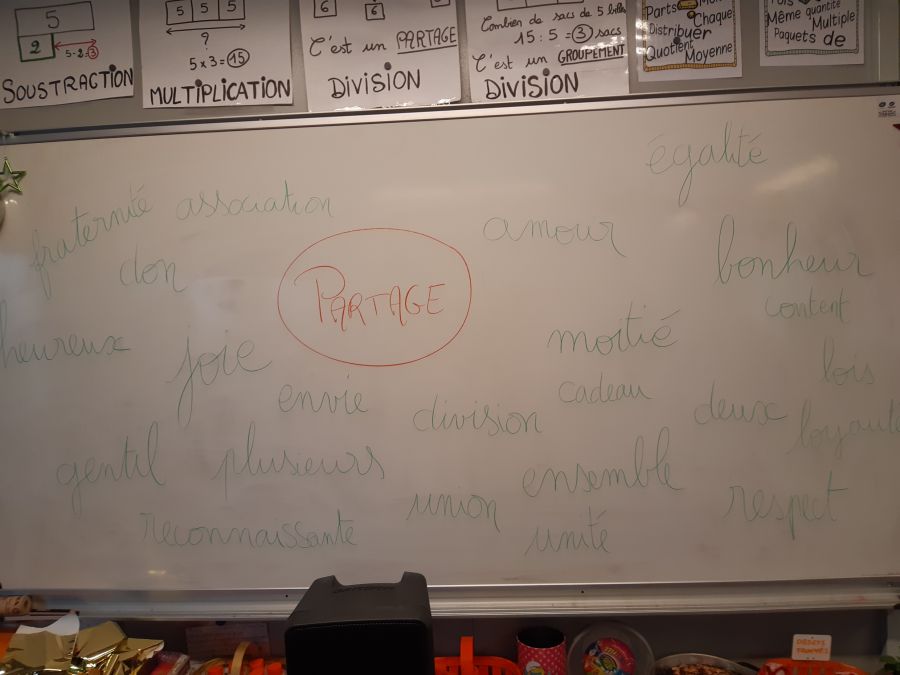 5
2
5-2=3
SOUSTRACTION
5 5 5
?
5x3=15
MULTIPLICATION
6
6
C'est un PARTAGE
DIVISION
Combien de sacs de 5 billes
15:5=3 sacs
C'est un GROUPEMENT
DIVISION
Parts
Chaque
Distribuer
Quotient
Moyenne
Même quantité
Multiple
Paquets de
égalité
fraternité
association
amour
don
bonheur
PARTAGE
content
heureux
joie
moitié
lois
envie
cadeau
division
deux
gentil
plusieurs
ensemble
union
respect
reconnaissante
unité
OBJETS
TROUVÉS